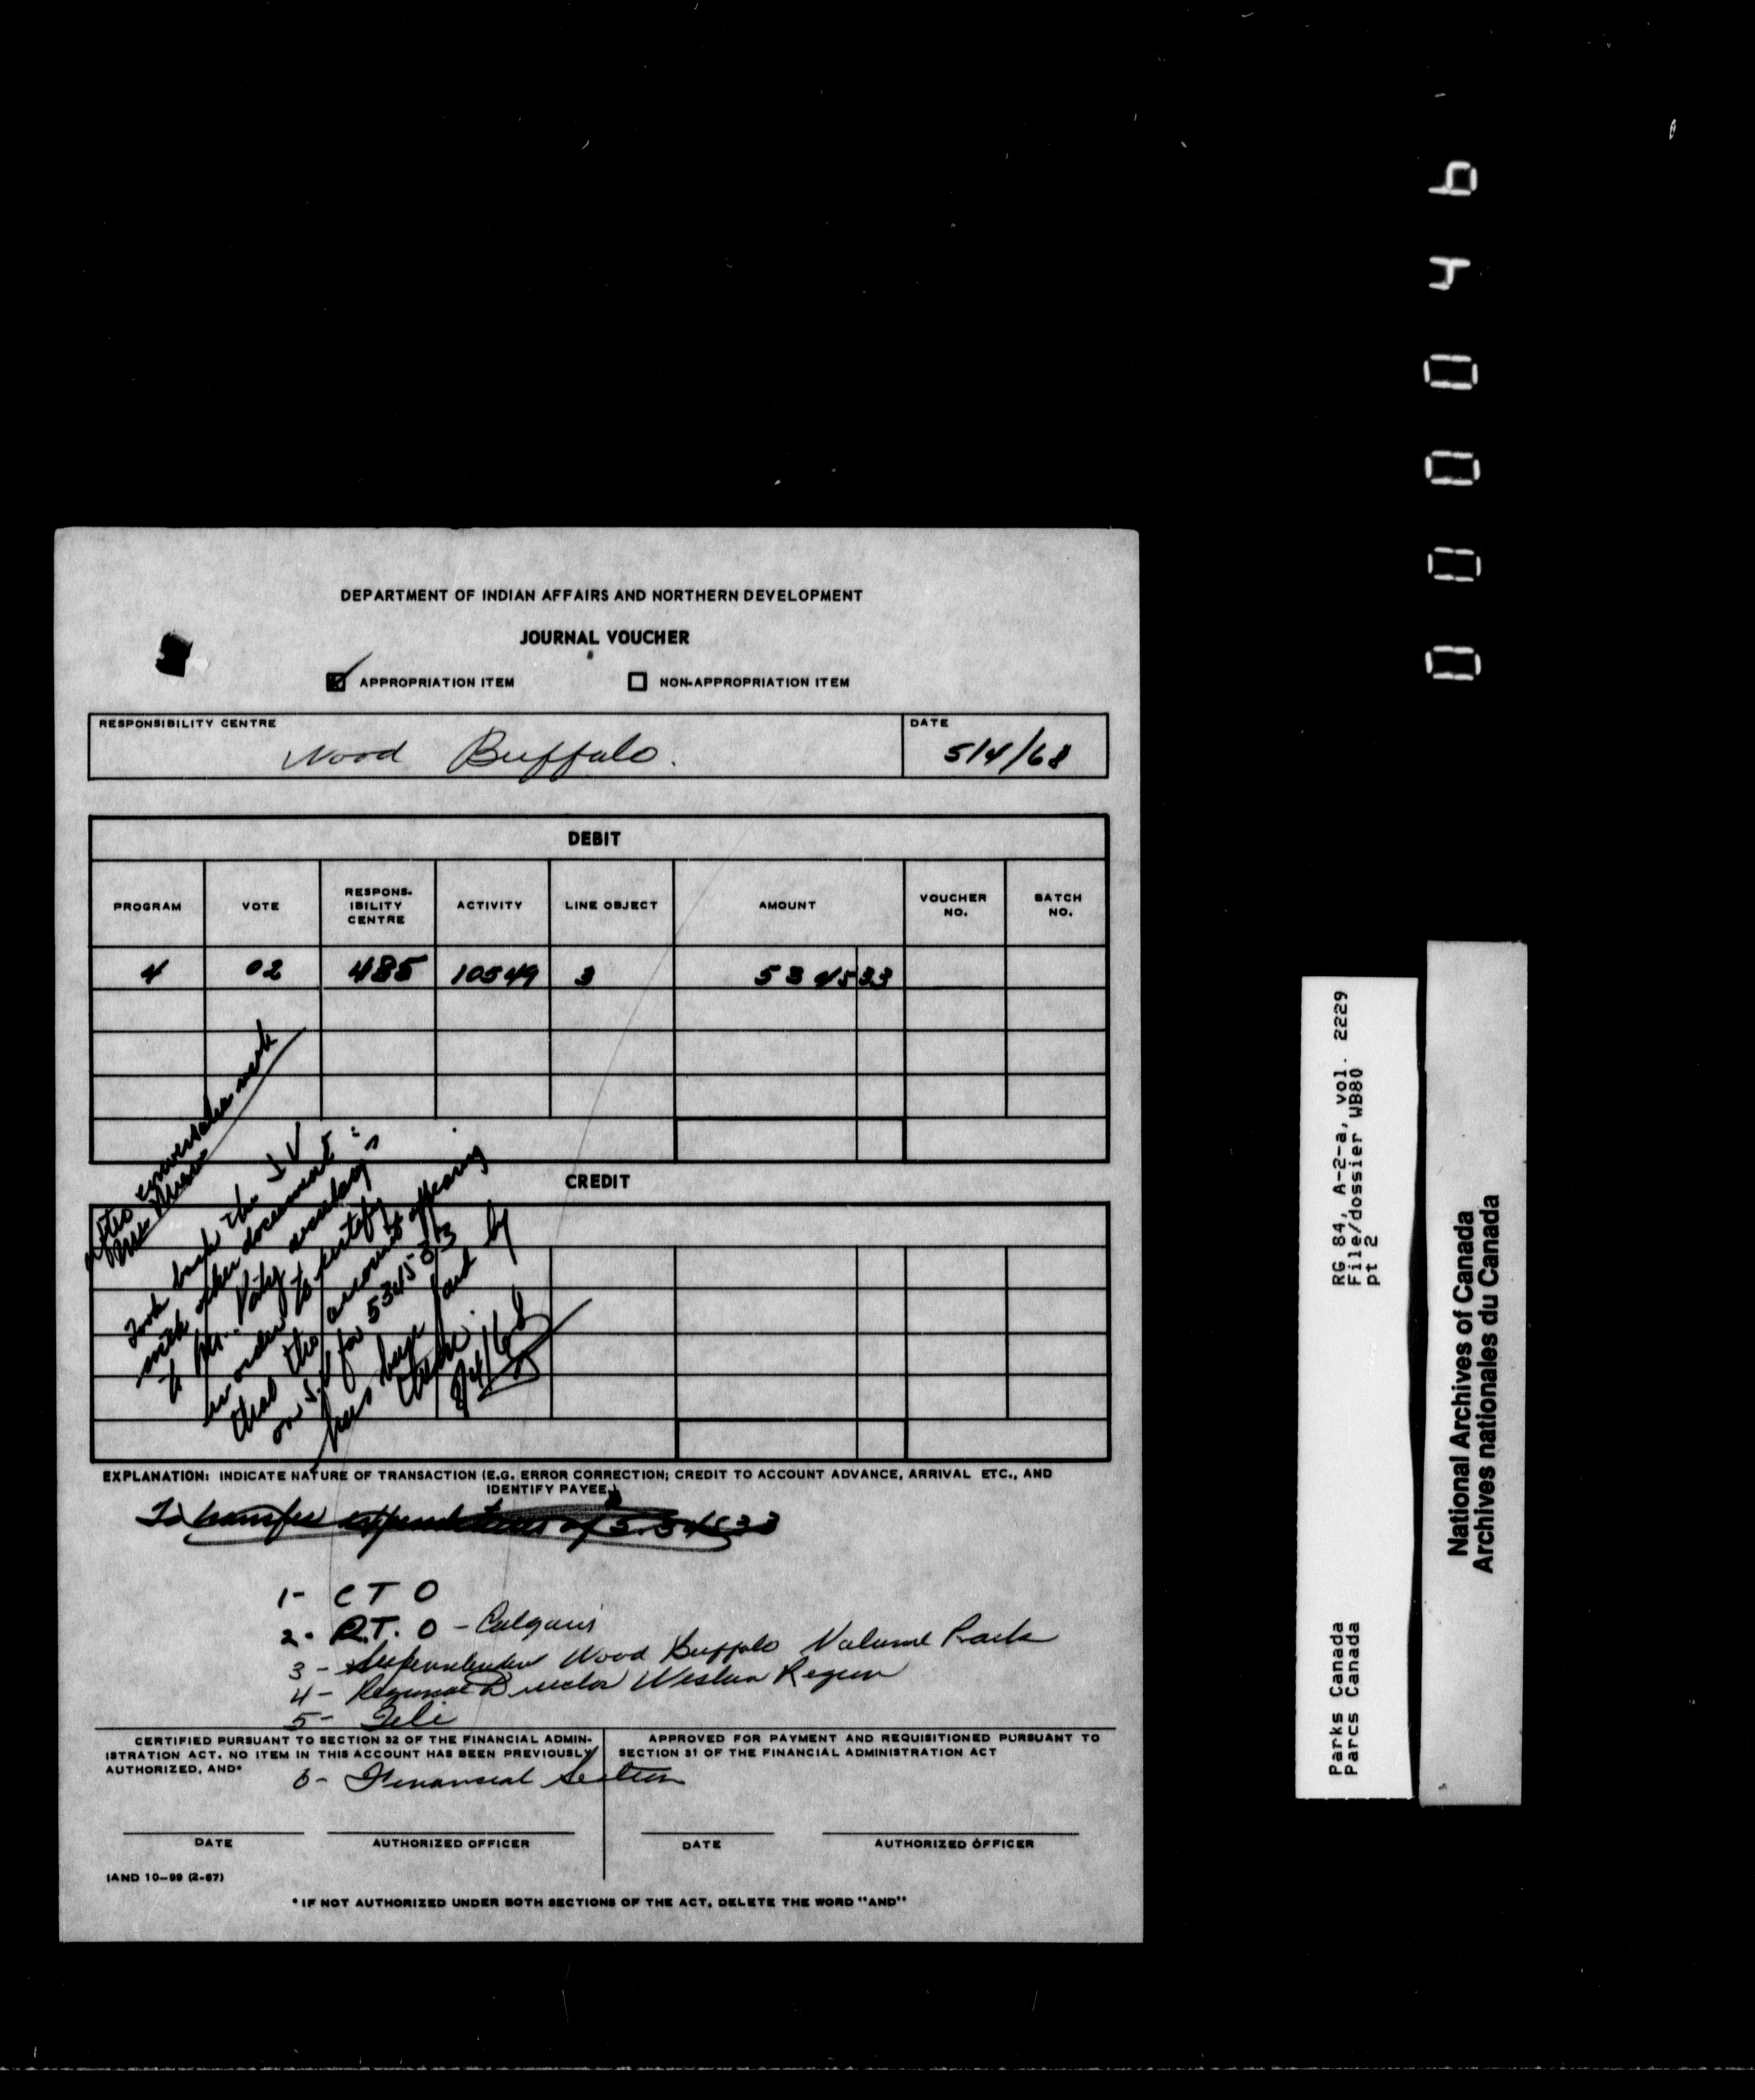 DEPARTMENT OF INDIAN AFFAIRS AND NORTHERN DEVELOPMENT
JOURNAL VOUCHER
APPROPRIATION ITEM NON-APPROPRIATION ITEM
RESPONSIBILITY CENTRE DATE
Wood Buffalo. 5/4/68
DEBIT
PROGRAM VOTE RESPONS-IBILITY CENTRE ACTIVITY LINE OBJECT AMOUNT VOUCHER NO. BATCH NO.
4 02 485 10549 3 5345 33
CREDIT
after
Took back the JV
with other document
to Mr.
in order to certify
that the account appearing
on J.V for 5345-33
has been paid by
cheque.
EXPLANATION: INDICATE NATURE OF TRANSACTION (E.G. ERROR CORRECTION; CREDIT TO ACCOUNT ADVANCE, ARRIVAL ETC., AND
IDENTIFY PAYEE)
To transfer expenditures of 5345 33
1- C T O
2- R.T. O - Calgary
3- Superintendent Wood Buffalo National Park
4- Regional Director Western Region
5- File
CERTIFIED PURSUANT TO SECTION 32 OF THE FINANCIAL ADMIN-
ISTRATION ACT. NO ITEM IN THIS ACCOUNT HAS BEEN PREVIOUSLY
AUTHORIZED, AND*
APPROVED FOR PAYMENT AND REQUISITIONED PURSUANT TO
SECTION 31 OF THE FINANCIAL ADMINISTRATION ACT
6- Financial Section
DATE AUTHORIZED OFFICER DATE AUTHORIZED OFFICER
IAND 10-99 (2-67)
*IF NOT AUTHORIZED UNDER BOTH SECTIONS OF THE ACT, DELETE THE WORD "AND"
Parks Canada RG 84, A-2-a, vol. 2229
Parcs Canada File/dossier WB80
pt 2
National Archives of Canada
Archives nationales du Canada